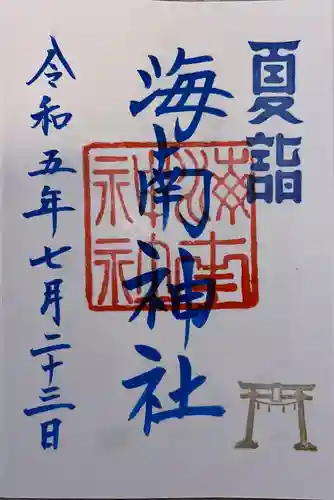 夏詣
海南神社
令和五年七月二十三日
海南神社